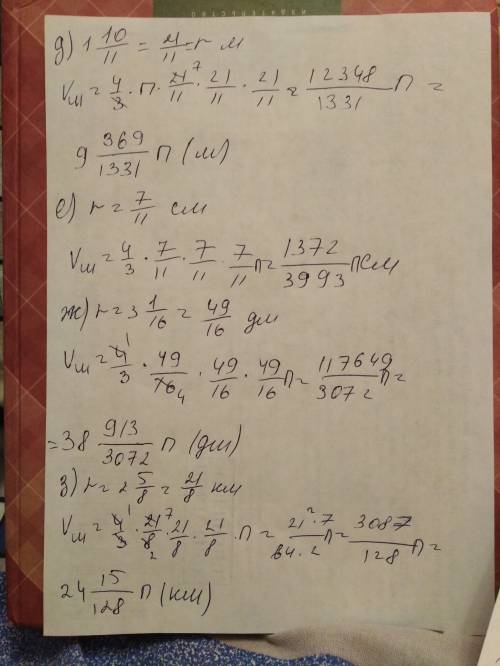 д) 1 10/11 = 21/11 = r м
Vш = 4/3 · П · 21/11 7 · 21/11 · 21/11 = 12348/1331 П =
9 369/1331 П (м)
е) r = 7/11 см
Vш = 4/3 · 7/11 · 7/11 · 7/11 П = 1372/3993 П см
ж) r = 3 1/16 = 49/16 дм
Vш = 4/3 1 · 49/16 4 · 49/16 · 49/16 П = 117649/3072 П =
= 38 913/3072 П (дм)
з) r = 2 5/8 = 21/8 км
Vш = 4/3 1 · 21/8 7 2 · 21/8 · 21/8 · П = 21² · 7/64 · 2 П = 3087/128 П =
24 15/128 П (км)